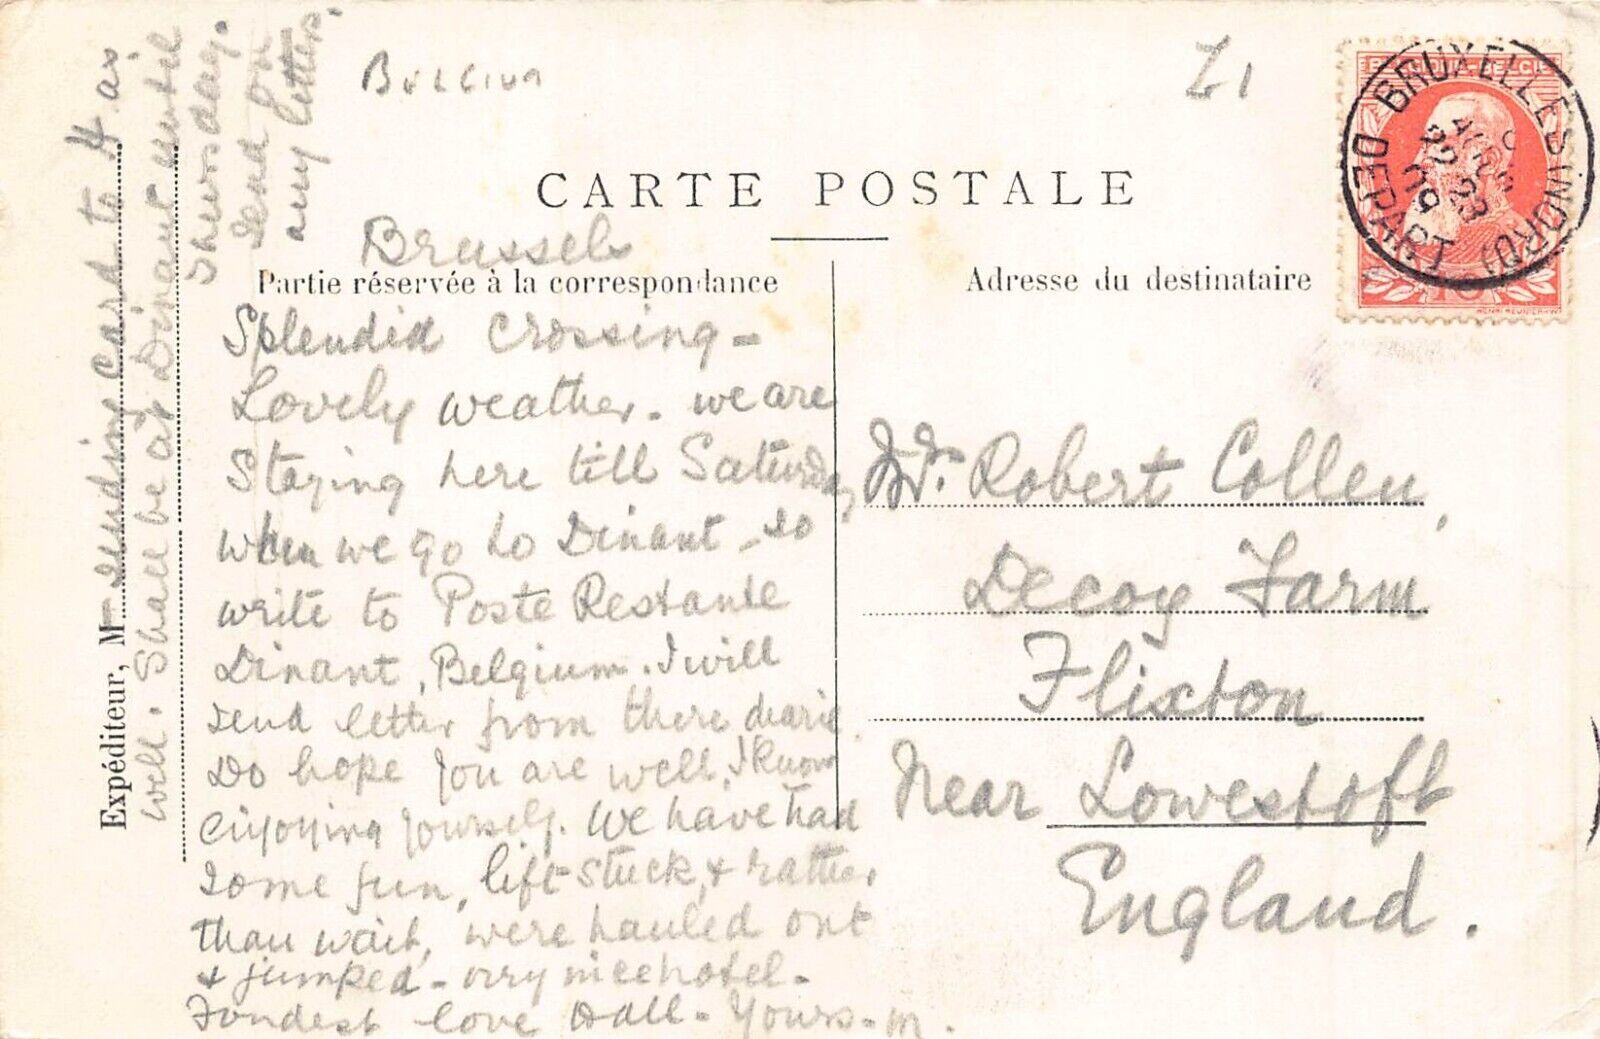 BELGIUM
Z1
CARTE POSTALE
Brussels
Partie réservée à la correspondance
Adresse du destinataire
Splendid crossing -
Lovely weather. we are
staying here till Saturday
when we go to Dinant - so
write to Poste Restante
Dinant, Belgium. I will
send letter from there dearie.
Do hope you are well, I know
enjoying yourself. We have had
some fun, lift stuck, & rather
than wait, were hauled out
& jumped - very nice hotel -
Fondest love to all - Yours - m.
Expéditeur, M
sending card to H. as
well. Shall be at Dinant until
Thursday.
Send on
any letters.
Mr. Robert Collen,
Decoy Farm
Flixton
Near Lowestoft
England.
BELGIQUE-BELGIË
10
BRUXELLES (NORD)
DEPART